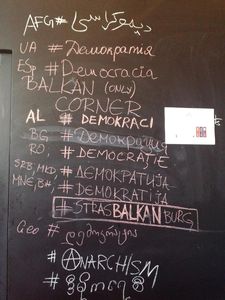 AFG # دیموکراسی
UA # Демократія
ESP # Democracia
BALKAN (ONLY)
CORNER
AL # DEMOKRACI
BG, # Демокрация
RO, # DEMOCRAȚIE
SRB, MKD, # ДЕМОКРАТИЈА
MNE, BH, # DEMOKRATIJA
# STRASBALKANBURG
Geo # დემოკრატია
# ANARCHISM
#